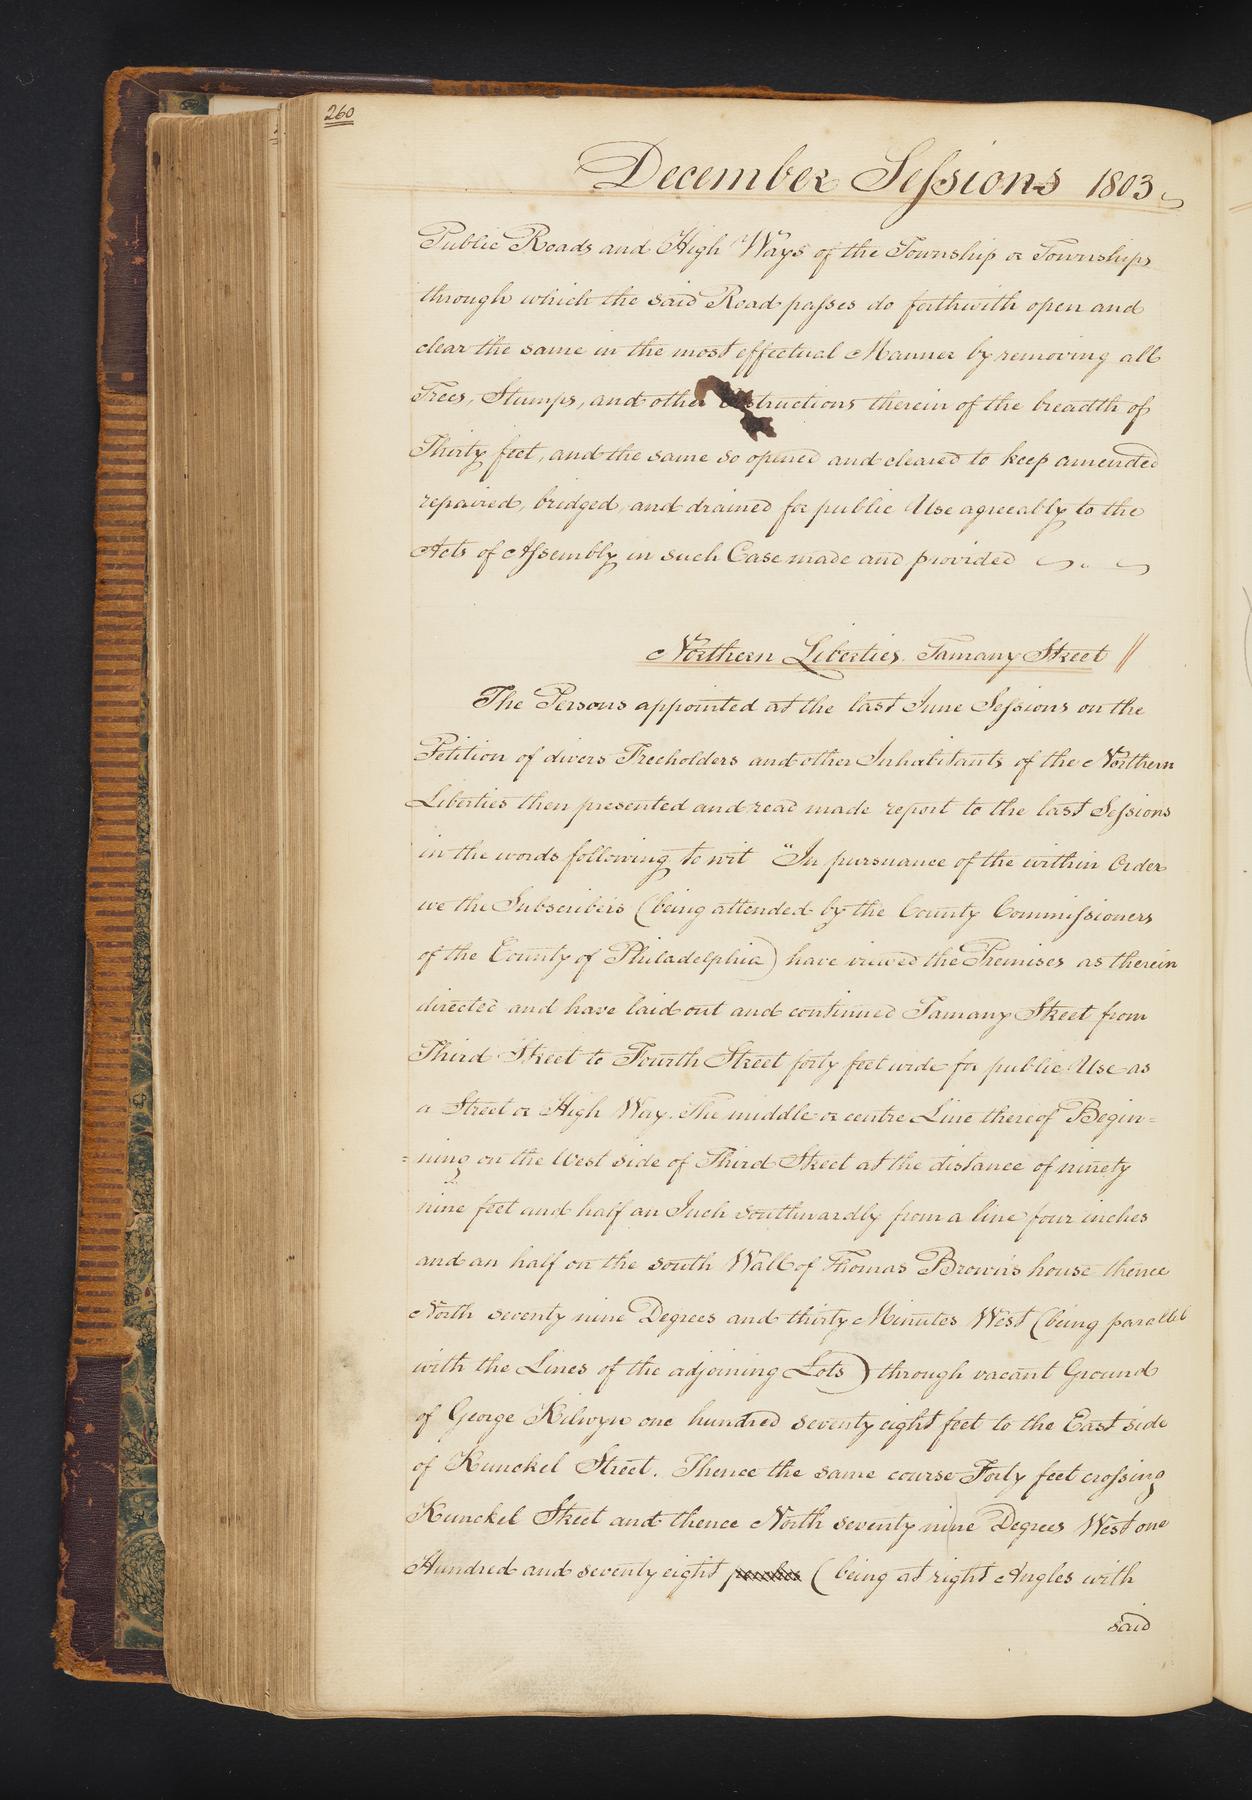 260
December Sessions 1803
Public Roads and High Ways of the Township or Townships
through which the said Road passes do forthwith open and
clear the same in the most effectual Manner by removing all
Trees, Stumps, and other obstructions therein of the breadth of
Thirty feet, and the same so opened and cleared to keep amended
repaired, bridged, and drained for public Use agreeably to the
Acts of Assembly in such Case made and provided
Northern Liberties. Tamany Street //
The Persons appointed at the last June Sessions on the
Petition of divers Freeholders and other Inhabitants of the Northern
Liberties then presented and read made report to the last Sessions
in the words following to wit "In pursuance of the within Order
we the Subscribers (being attended by the County Commissioners
of the County of Philadelphia) have viewed the Premises as therein
directed and have laid out and continued Tamany Street from
Third Street to Fourth Street forty feet wide for public Use as
a Street or High Way. The middle or centre Line thereof Begin=
=ning on the West side of Third Street at the distance of ninety
nine feet and half an Inch southwardly from a line four inches
and an half on the south Wall of Thomas Brown's house thence
North seventy nine Degrees and thirty Minutes West (being parallel
with the Lines of the adjoining Lots) through vacant Ground
of George Kilwyn one hundred seventy eight feet to the East side
of Kunckel Street. Thence the same course Forty feet crossing
Kunckel Street and thence North seventy nine Degrees West one
Hundred and seventy eight (being at right Angles with
said